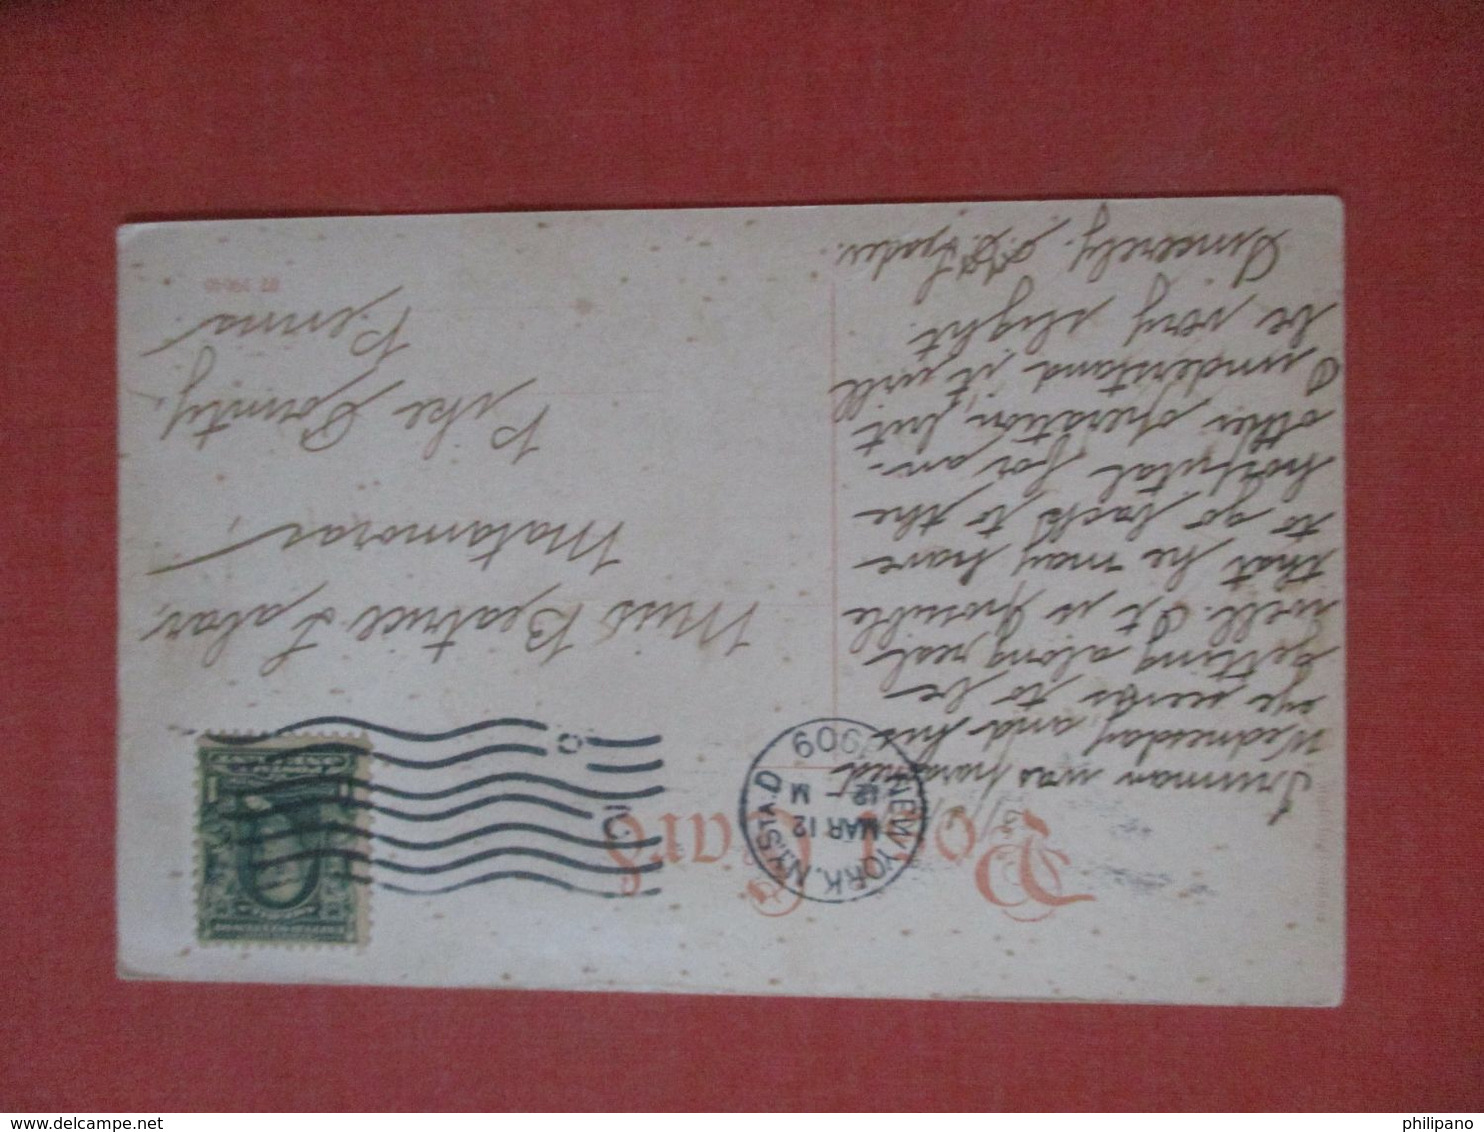 Post Card
NEW YORK, N.Y. STA. D
MAR 12
12 - M
1909
Truman was
Wednesday, and his
eye seems to be
getting along real
well. It is possible
that he may have
to go back to the
hospital for an-
other operation, but
I understand it will
be very slight.
Sincerely,
Miss Beatrice
Matamoras,
Pike County,
Penna
philipano